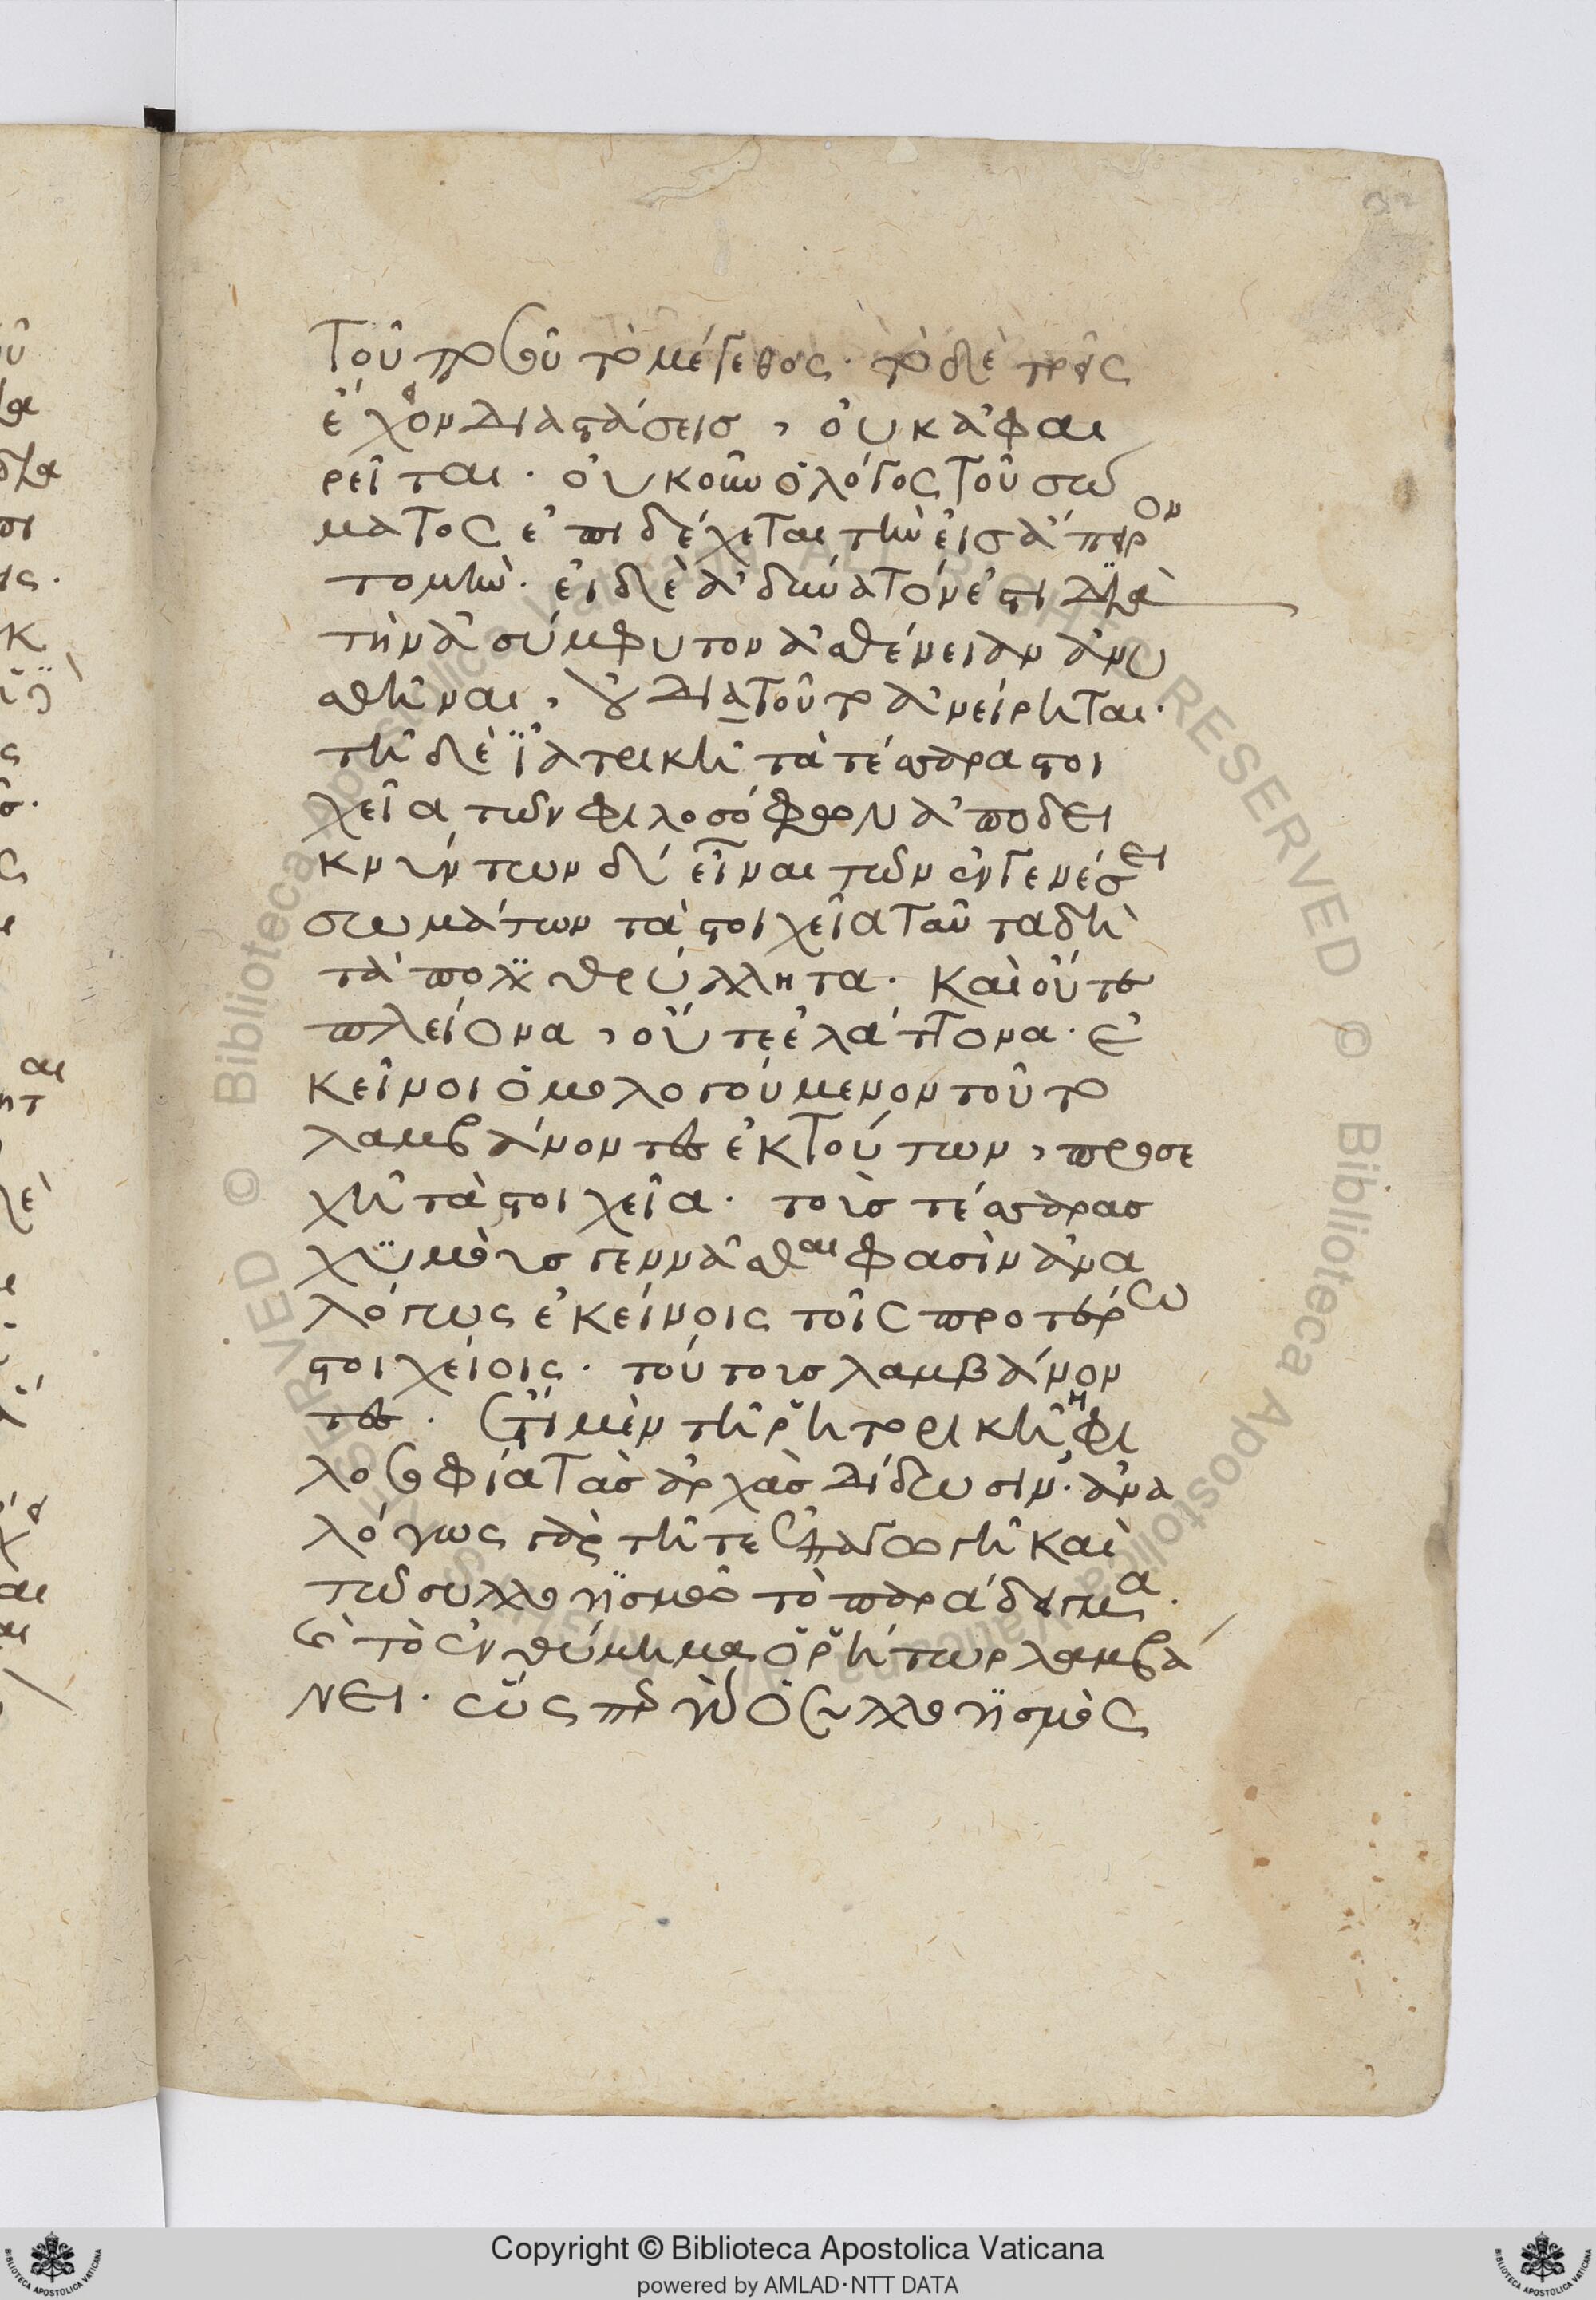 τοῦ ποσοῦ τὸ μέγεθος· τὸ δὲ τρεῖς
ἔχον διαστάσεις, οὐκ ἀφαι
ρεῖται· οὐκοῦν ὁ λόγος τοῦ σώ
ματος ἐπιδέχεται τὴν εἰς ἄπειρον
τομήν· εἰ δὲ ἀδύνατόν ἐστι διὰ
τὴν σύμφυτον ἀσθένειαν ἀνυ
σθῆναι, οὐ διατοῦτο ἀνείρηται·
τῆ δὲ ἰατρικῆ τὰ τέσσαρα στοι
χεῖα τῶν φιλοσόφων ἀποδει
κνύντων δ' εἶναι τῶν ἐν γενέσει
σωμάτων τὰ στοιχεῖα ταῦτα δὴ
τὰ πολυθρύλλητα· καὶ οὔτε
πλείονα, οὔτε ἐλάττονα· ἐ
κεῖνοι ὁμολογούμενον τοῦτο
λαμβάνοντες ἐκ τούτων, προσε
χῆ τὰ στοιχεῖα· τοὺς τέσσαρας
χυμοὺς γεννᾶσθαι φασὶν ἀνα
λόγως ἐκείνοις τοῖς προτέρω
στοιχείοις· τούτους λαμβάνον
τες· ἔτι μὲν τῆ ῥητορικῆ ἡ φι
λοσοφία τὰς ἀρχὰς δίδωσιν· ἀνα
λόγως γὰρ τῆ τε ἐπαγωγῆ καὶ
τῶ συλλογισμῶ τὸ παράδειγμα·
καὶ τὸ ἐνθύμημα ὁ ῥήτωρ λαμβά
νει· ὁ συλλογισμὸς
Copyright © Biblioteca Apostolica Vaticana
powered by AMLAD·NTT DATA